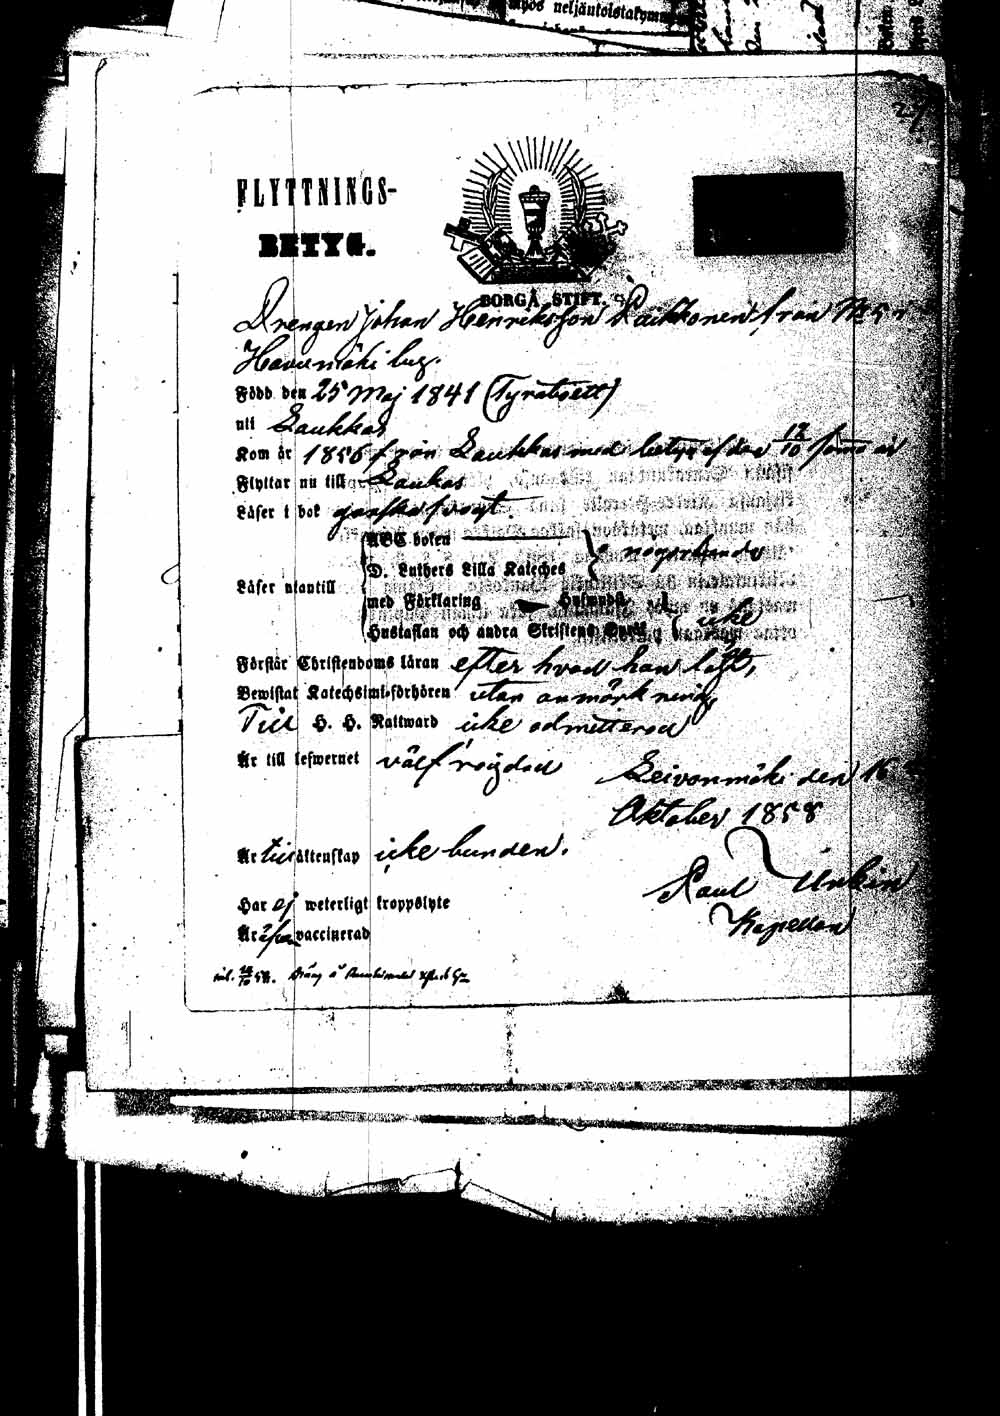 myös neljäntoistakymm
FLYTTNINGS-
BETYG.
BORGÅ STIFT.
Drengen Johan Henriksson Päckkonen från № 5 i
Havumäki by.
Född den 25 Maj 1841
uti Laukkas
Kom år 1856 från Laukkas med betyg af den 12/10 samma år
Flyttar nu till Laukas
Läser i bok ganska svagt.
ABC boken
D. Luthers Lilla Kateches någorlunda
Läser utantill
med Förklaring
Hustaflan och andra Skriftens Språk icke
Förstår Christendoms läran efter hvad han läst,
Bewistat Katechsimi-förhören utan anmärkning
Till H. H. Nattward icke admitterad
Är till lefwernet välfrägdad
Leivonmäki den 16
Oktober 1858
Är till äktenskap icke bunden.
Paul
Kapellan
Har ej weterligt kroppslyte
Är vaccinerad